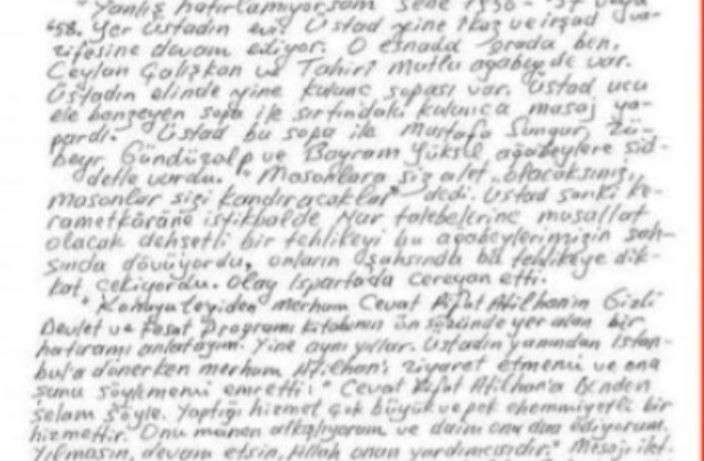 "Yanlış hatırlamıyorsam sene 1956-57 veya
58. Yer Üstadın evi. Üstad yine ikaz ve irşad va-
zifesine devam ediyor. O esnada orada ben,
Ceylan Çalışkan ve Tahirî Mutlu ağabey de var.
Üstadın elinde yine kulunç sopası var. Üstad ucu
ele benzeyen sopa ile sırtındaki kulunca masaj ya-
pardı. Üstad bu sopa ile Mustafa Sungur, Zü-
beyr Gündüzalp ve Bayram Yüksel ağabeylere şid-
detle vurdu. "Masonlara siz alet olacaksınız,
masonlar sizi kandıracaklar" dedi. Üstad sanki ke-
rametkârâne istikbalde Nur talebelerine musallat
olacak dehşetli bir tehlikeyi bu ağabeylerimizin şah-
sında dövüyordu, onların şahsında bu tehlikeye dik-
kat çekiyordu. Olay Isparta'da cereyan etti.
"Konuyu teyiden merhum Cevat Rıfat Atilhan'ın Gizli
Devlet ve Fesat Programı kitabının ön sözünde yer alan bir
hatıramı anlatayım. Yine aynı yıllar. Üstadın yanından İstan-
bul'a dönerken merhum Atilhan'ı ziyaret etmemi ve ona
şunu söylememi emretti: "Cevat Rıfat Atilhan'a benden
selam söyle. Yaptığı hizmet çok büyük ve pek ehemmiyetli bir
hizmettir. Onu manen alkışlıyorum ve daim ona dua ediyorum.
Yılmasın, devam etsin, Allah onun yardımcısıdır." Mesajı ilet-